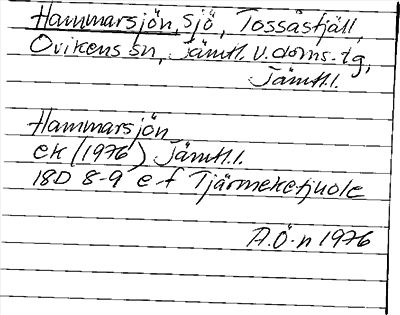 Hammarsjön, sjö, Tossåsfjäll,
Ovikens sn, Jämtl. v. doms.-lg,
Jämtl. l.
Hammarsjön
ek (1976) Jämtl. l.
18D 8-9 e-f Tjärmeketjuole
A.Ö-n 1976